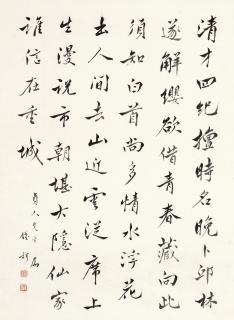 清才四纪擅时名晚卜邱林
遂解缨欲借青春藏向此
须知白首尚多情水浮花
出人间去山近云从席上
生漫说市朝堪大隐仙家
谁信在重城